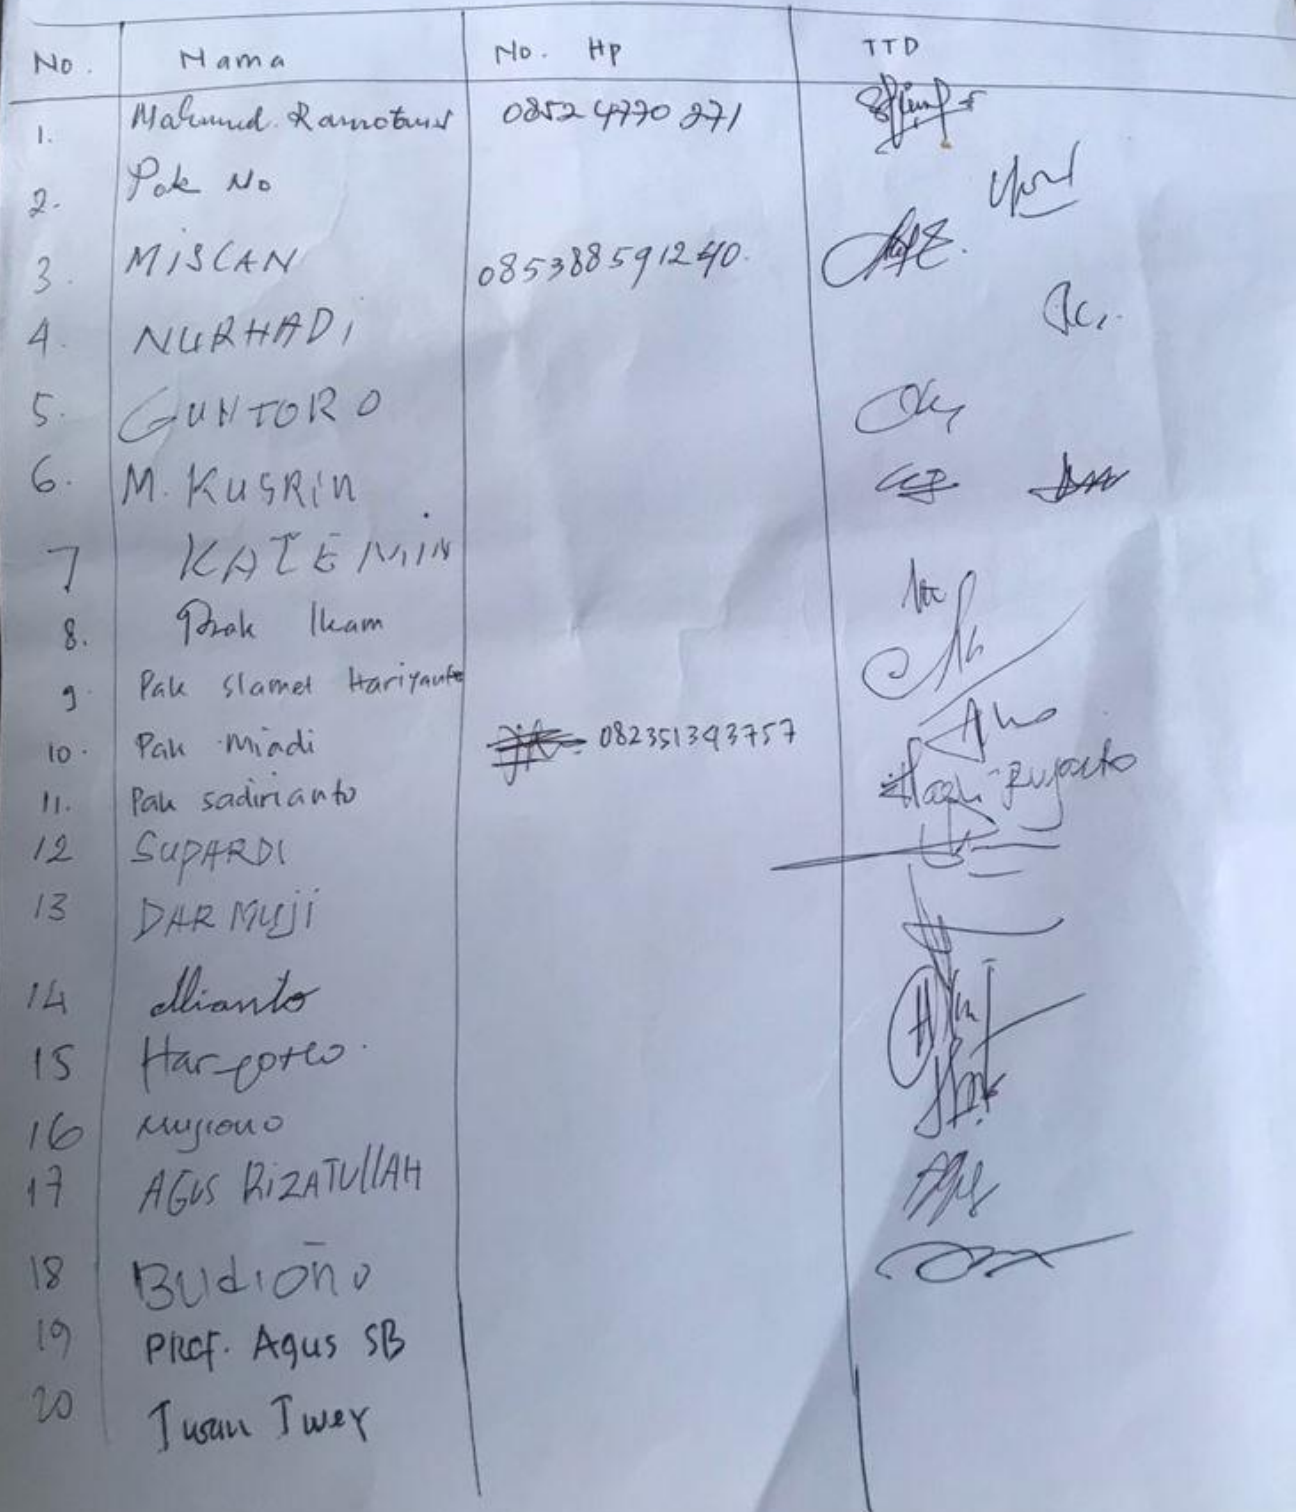 No. Nama No. Hp TTD
1. Mahmud 08524770271
2. Pak No
3. MISCAN 085388591240.
4. NURHADI
5. GUNTORO
6. M. KUSRIN
7 KATEMIN
8. Pak Ikam
9. Pak Slamet Hariyanto
10. Pak Miadi 082351343757
11. Pak sadirianto
12 SUPARDI
13 DARMUJI
14
15
16 Mujiono
17 AGUS RIZATULLAH
18 BUDIONO
19 PROF. Agus SB
20 Iwan Twey